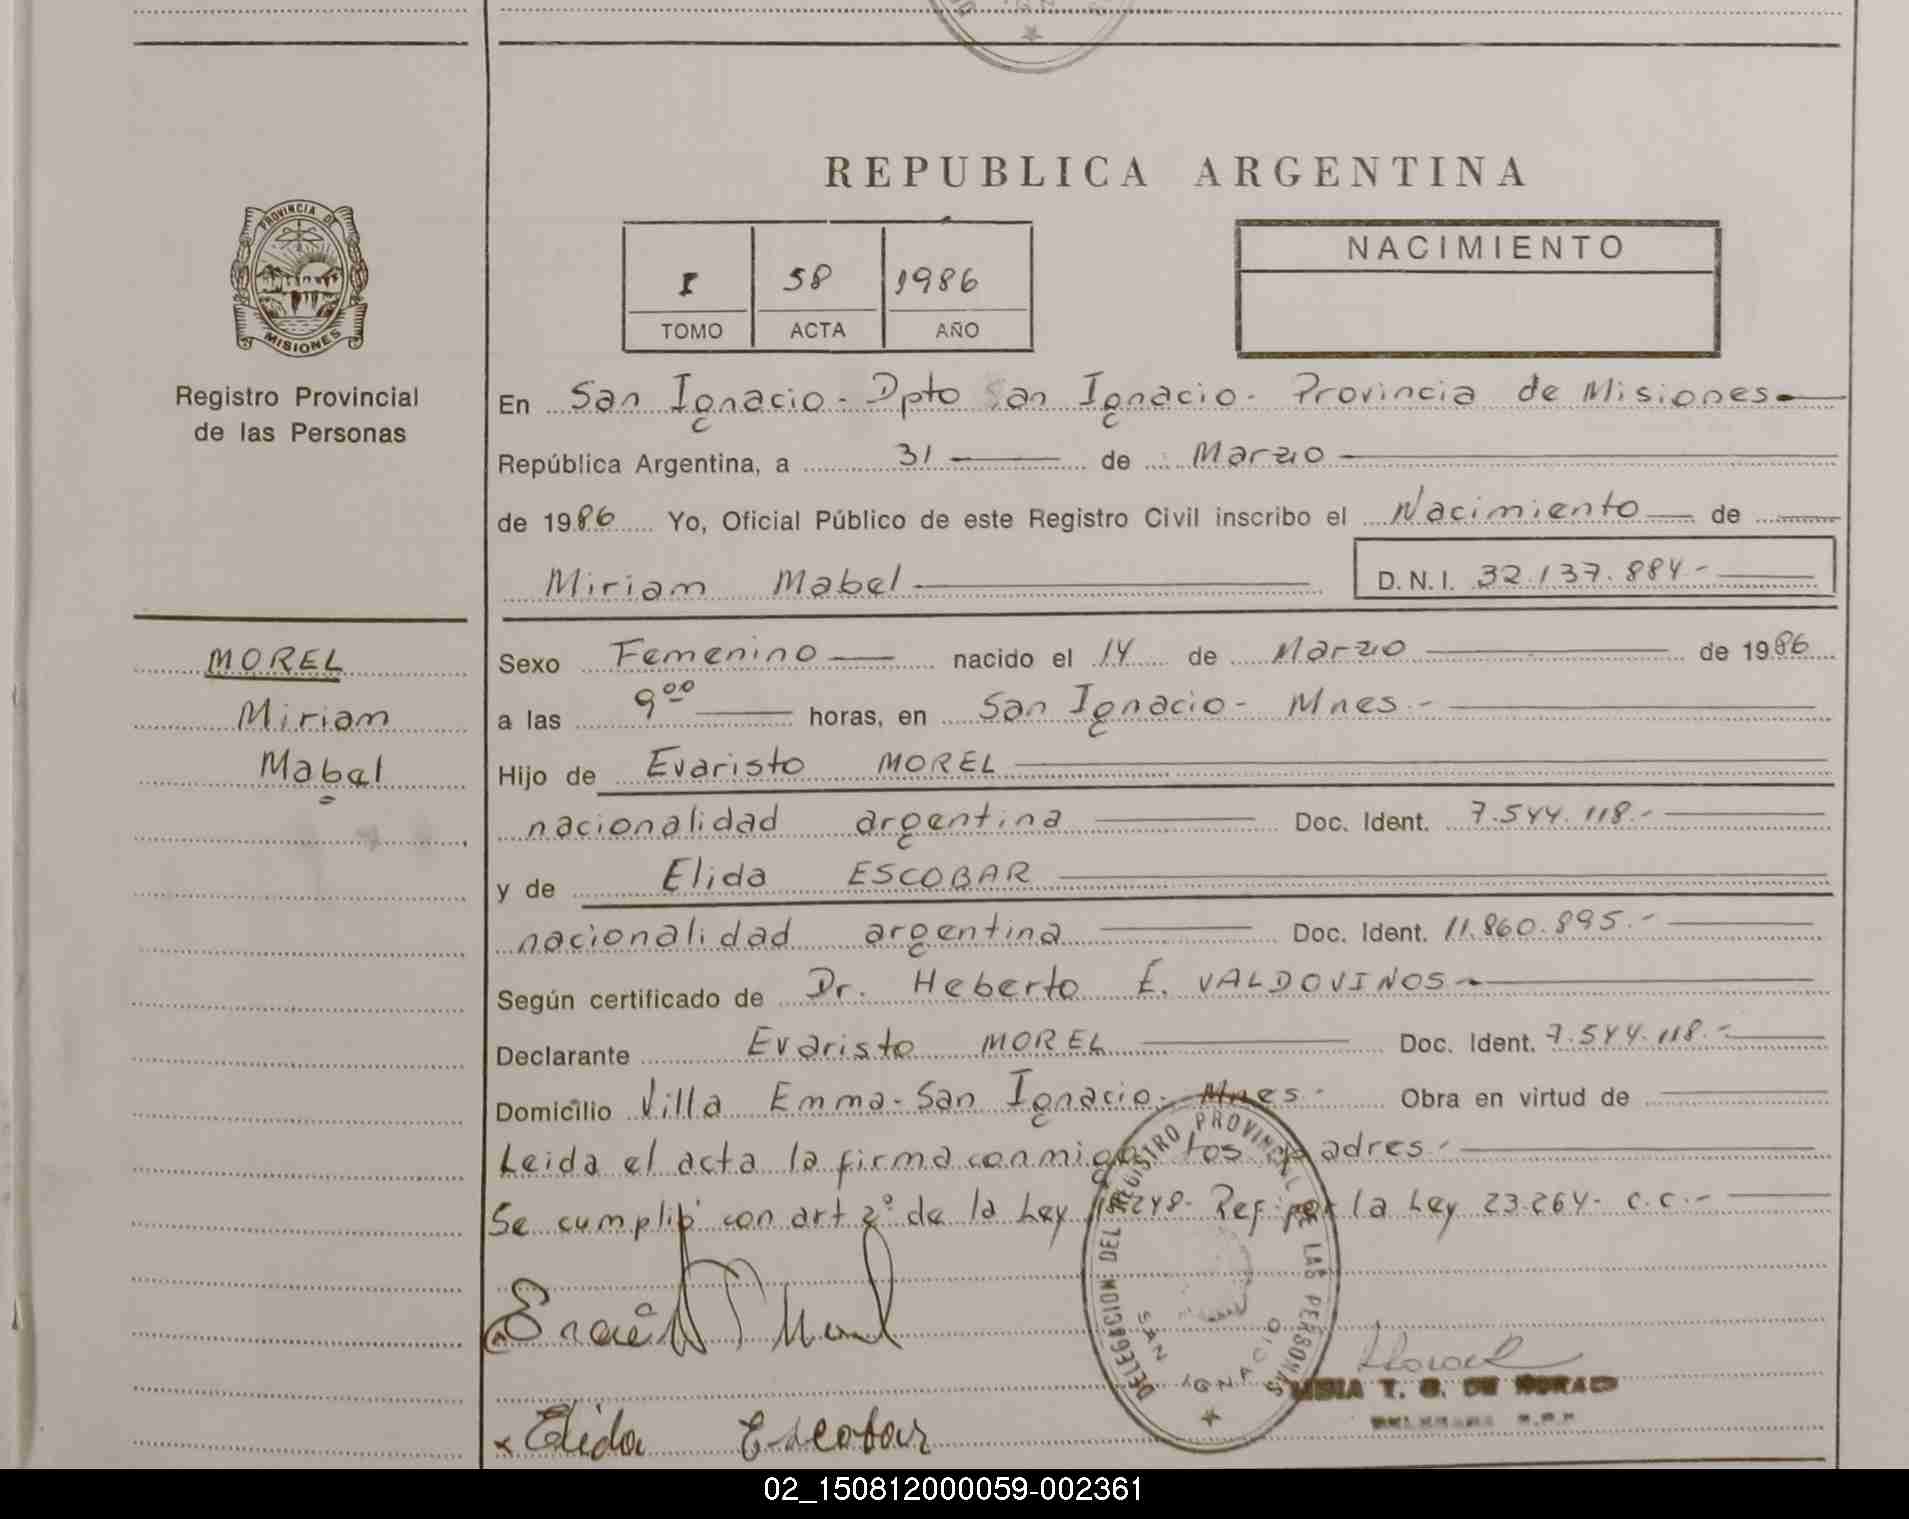 REPUBLICA ARGENTINA
PROVINCIA DE
MISIONES
Registro Provincial
de las Personas
I 58 1986
TOMO ACTA AÑO
NACIMIENTO
En San Ignacio - Dpto San Ignacio - Provincia de Misiones
República Argentina, a 31 de Marzo
de 1986 Yo, Oficial Público de este Registro Civil inscribo el Nacimiento de
Miriam Mabel D.N.I. 32.137.884-
MOREL
Miriam
Mabel
Sexo Femenino nacido el 14 de Marzo de 1986
a las 9⁰⁰ horas, en San Ignacio - Mnes -
Hijo de Evaristo MOREL
nacionalidad argentina Doc. Ident. 7.544.118.-
y de Elida ESCOBAR
nacionalidad argentina Doc. Ident. 11.860.895.-
Según certificado de Dr. Heberto E. VALDOVINOS -
Declarante Evaristo MOREL Doc. Ident. 7.544.118.-
Domicilio Villa Emma - San Ignacio - Mnes - Obra en virtud de
Leida el acta la firma conmigo los padres -
Se cumplió con art 2° de la Ley 18248- Ref. por la Ley 23.264- C.C.-
DELEGACION DEL REGISTRO PROVINCIAL DE LAS PERSONAS
SAN IGNACIO
Elida Escobar
T. G. DE MORALES
02_150812000059-002361